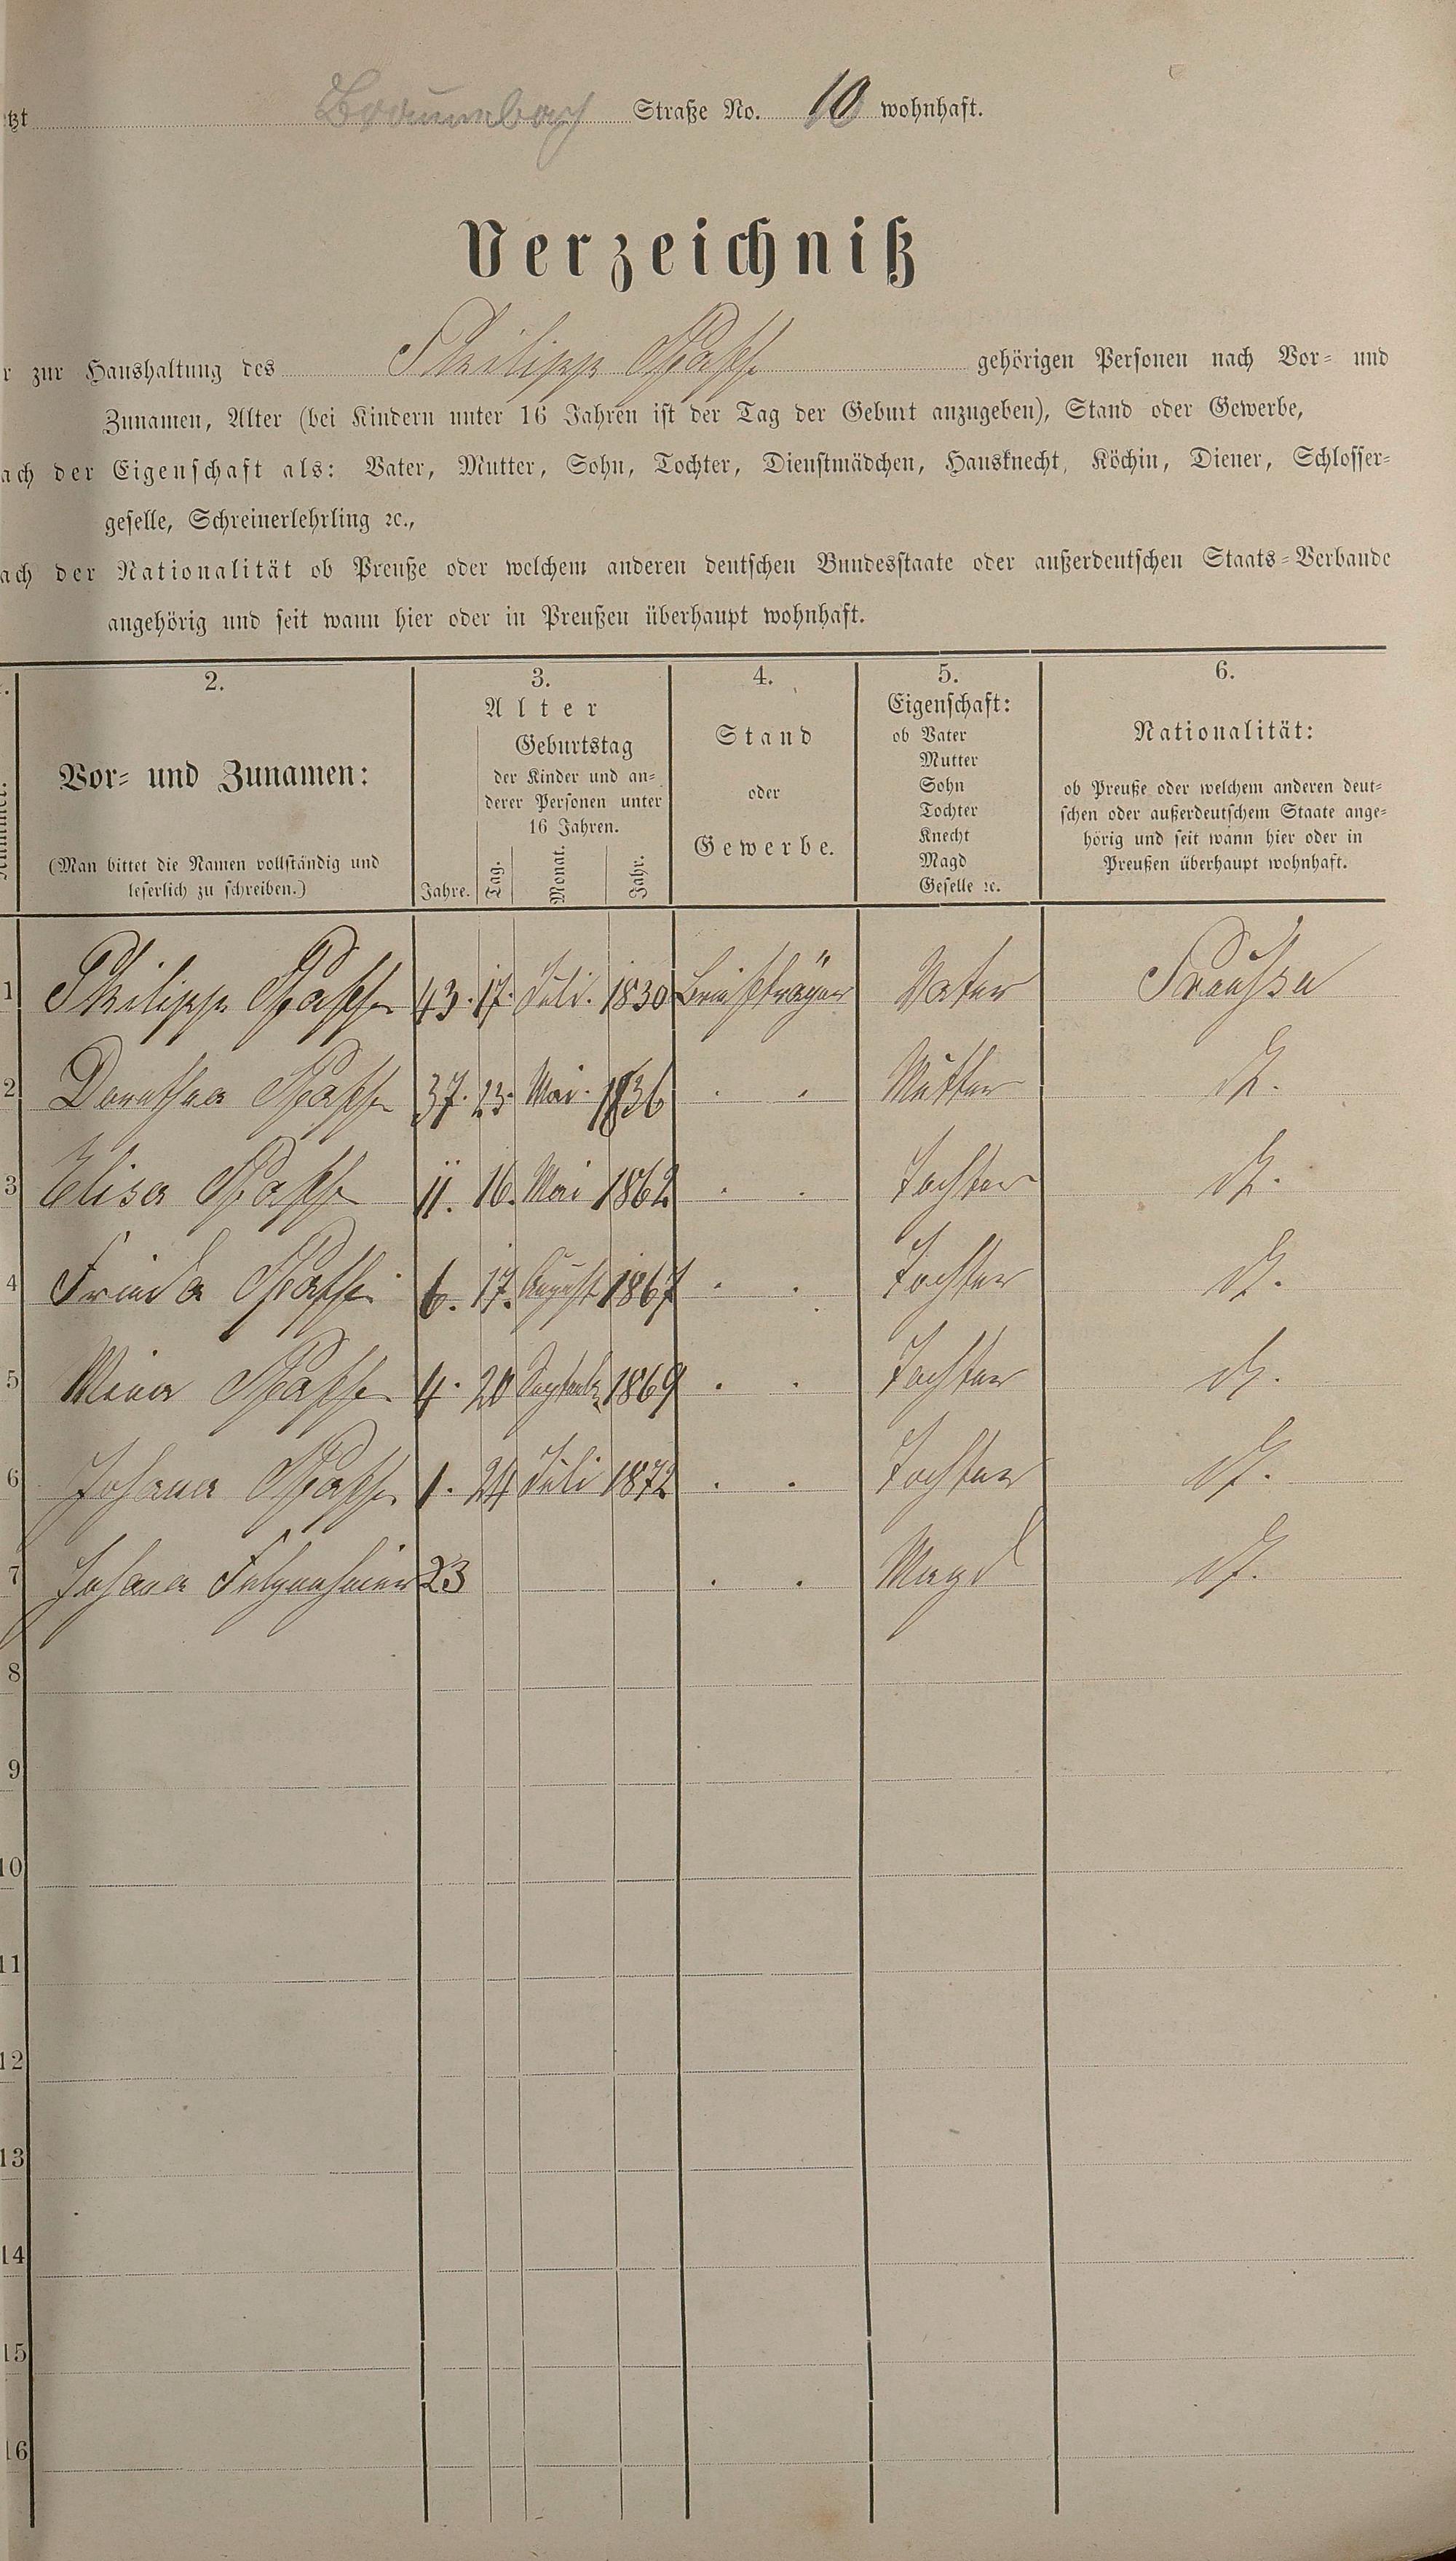 tzt Braumbach Straße No. 10 wohnhaft.
Verzeichniß
r zur Haushaltung des Philipp Pfaff gehörigen Personen nach Vor= und
Zunamen, Alter (bei Kindern unter 16 Jahren ist der Tag der Geburt anzugeben), Stand oder Gewerbe,
ach der Eigenschaft als: Vater, Mutter, Sohn, Tochter, Dienstmädchen, Hausknecht, Köchin, Diener, Schlosser=
geselle, Schreinerlehrling ꝛc.,
ach der Nationalität ob Preuße oder welchem anderen deutschen Bundesstaate oder außerdeutschen Staats=Verbande
angehörig und seit wann hier oder in Preußen überhaupt wohnhaft.
2. 3. 4. 5. 6.
Vor= und Zunamen:
(Man bittet die Namen vollständig und
leserlich zu schreiben.)
Alter
Geburtstag
der Kinder und an=
derer Personen unter
16 Jahren.
Jahre. Tag. Monat. Jahr.
Stand
oder
Gewerbe.
Eigenschaft:
ob Vater
Mutter
Sohn
Tochter
Knecht
Magd
Geselle ꝛc.
Nationalität:
ob Preuße oder welchem anderen deut=
schen oder außerdeutschem Staate ange=
hörig und seit wann hier oder in
Preußen überhaupt wohnhaft.
1 Philipp Pfaff 43. 17. Juli. 1830 Briefträger Vater Preusse
2 Dorothea Pfaff 37. 23. Mai. 1836 Mutter dt.
3 Elisa Pfaff 11. 16. Mai 1862 Tochter dt.
4 Frieda Pfaff 6. 17. August 1867 Tochter dt.
5 Mina Pfaff 4. 20 Septemb. 1869 Tochter dt.
6 Johana Pfaff 1. 24 Juli 1872 Tochter dt.
7 Johana 23 Magd dt.
8
9
10
11
12
13
14
15
16